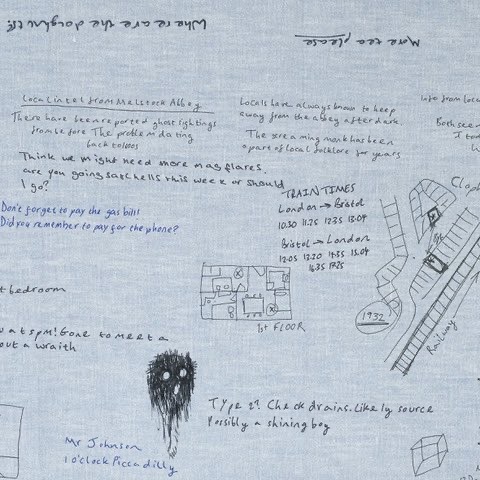 Where are the doughnuts?!
More tea please
Local intel from Melstock Abbey
There have been reported ghost sightings
from before The problem dating
back to 1800s
Think we might need more mag flares,
are you going satchells this week or should
I go?
Don't forget to pay the gas bill!
Did you remember to pay for the phone?
Locals have always known to keep
away from the abbey after dark.
The screaming monk has been
a part of local folklore for years
info from loca
Both seen
I too
TRAIN TIMES
London → Bristol
10.30 11.25 12.35 13.04
Bristol → London
12.05 13.20 14.35 15.04
16.35 17.25
Clap
1932
Railway
1st FLOOR
t bedroom
w at 5pm! Gone to meet a
out a wraith
Type 2? Check drains. Likely source
Possibly a shining boy
Mr Johnson
1 o'clock Piccadilly